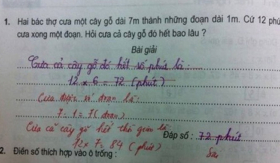 1. Hai bác thợ cưa một cây gỗ dài 7m thành những đoạn dài 1m. Cứ 12 phú
cưa xong một đoạn. Hỏi cưa cả cây gỗ đó hết bao lâu ?
Bài giải
Cưa cả cây gỗ đó hết số phút là :
12 x 6 = 72 (phút)
Cưa được số đoạn là:
7 : 1 = 7 (đoạn)
Cưa cả cây gỗ hết thời gian là:
Đáp số : 72 phút
12 x 7 = 84 (phút)
Sai
2. Điền số thích hợp vào ô trống :